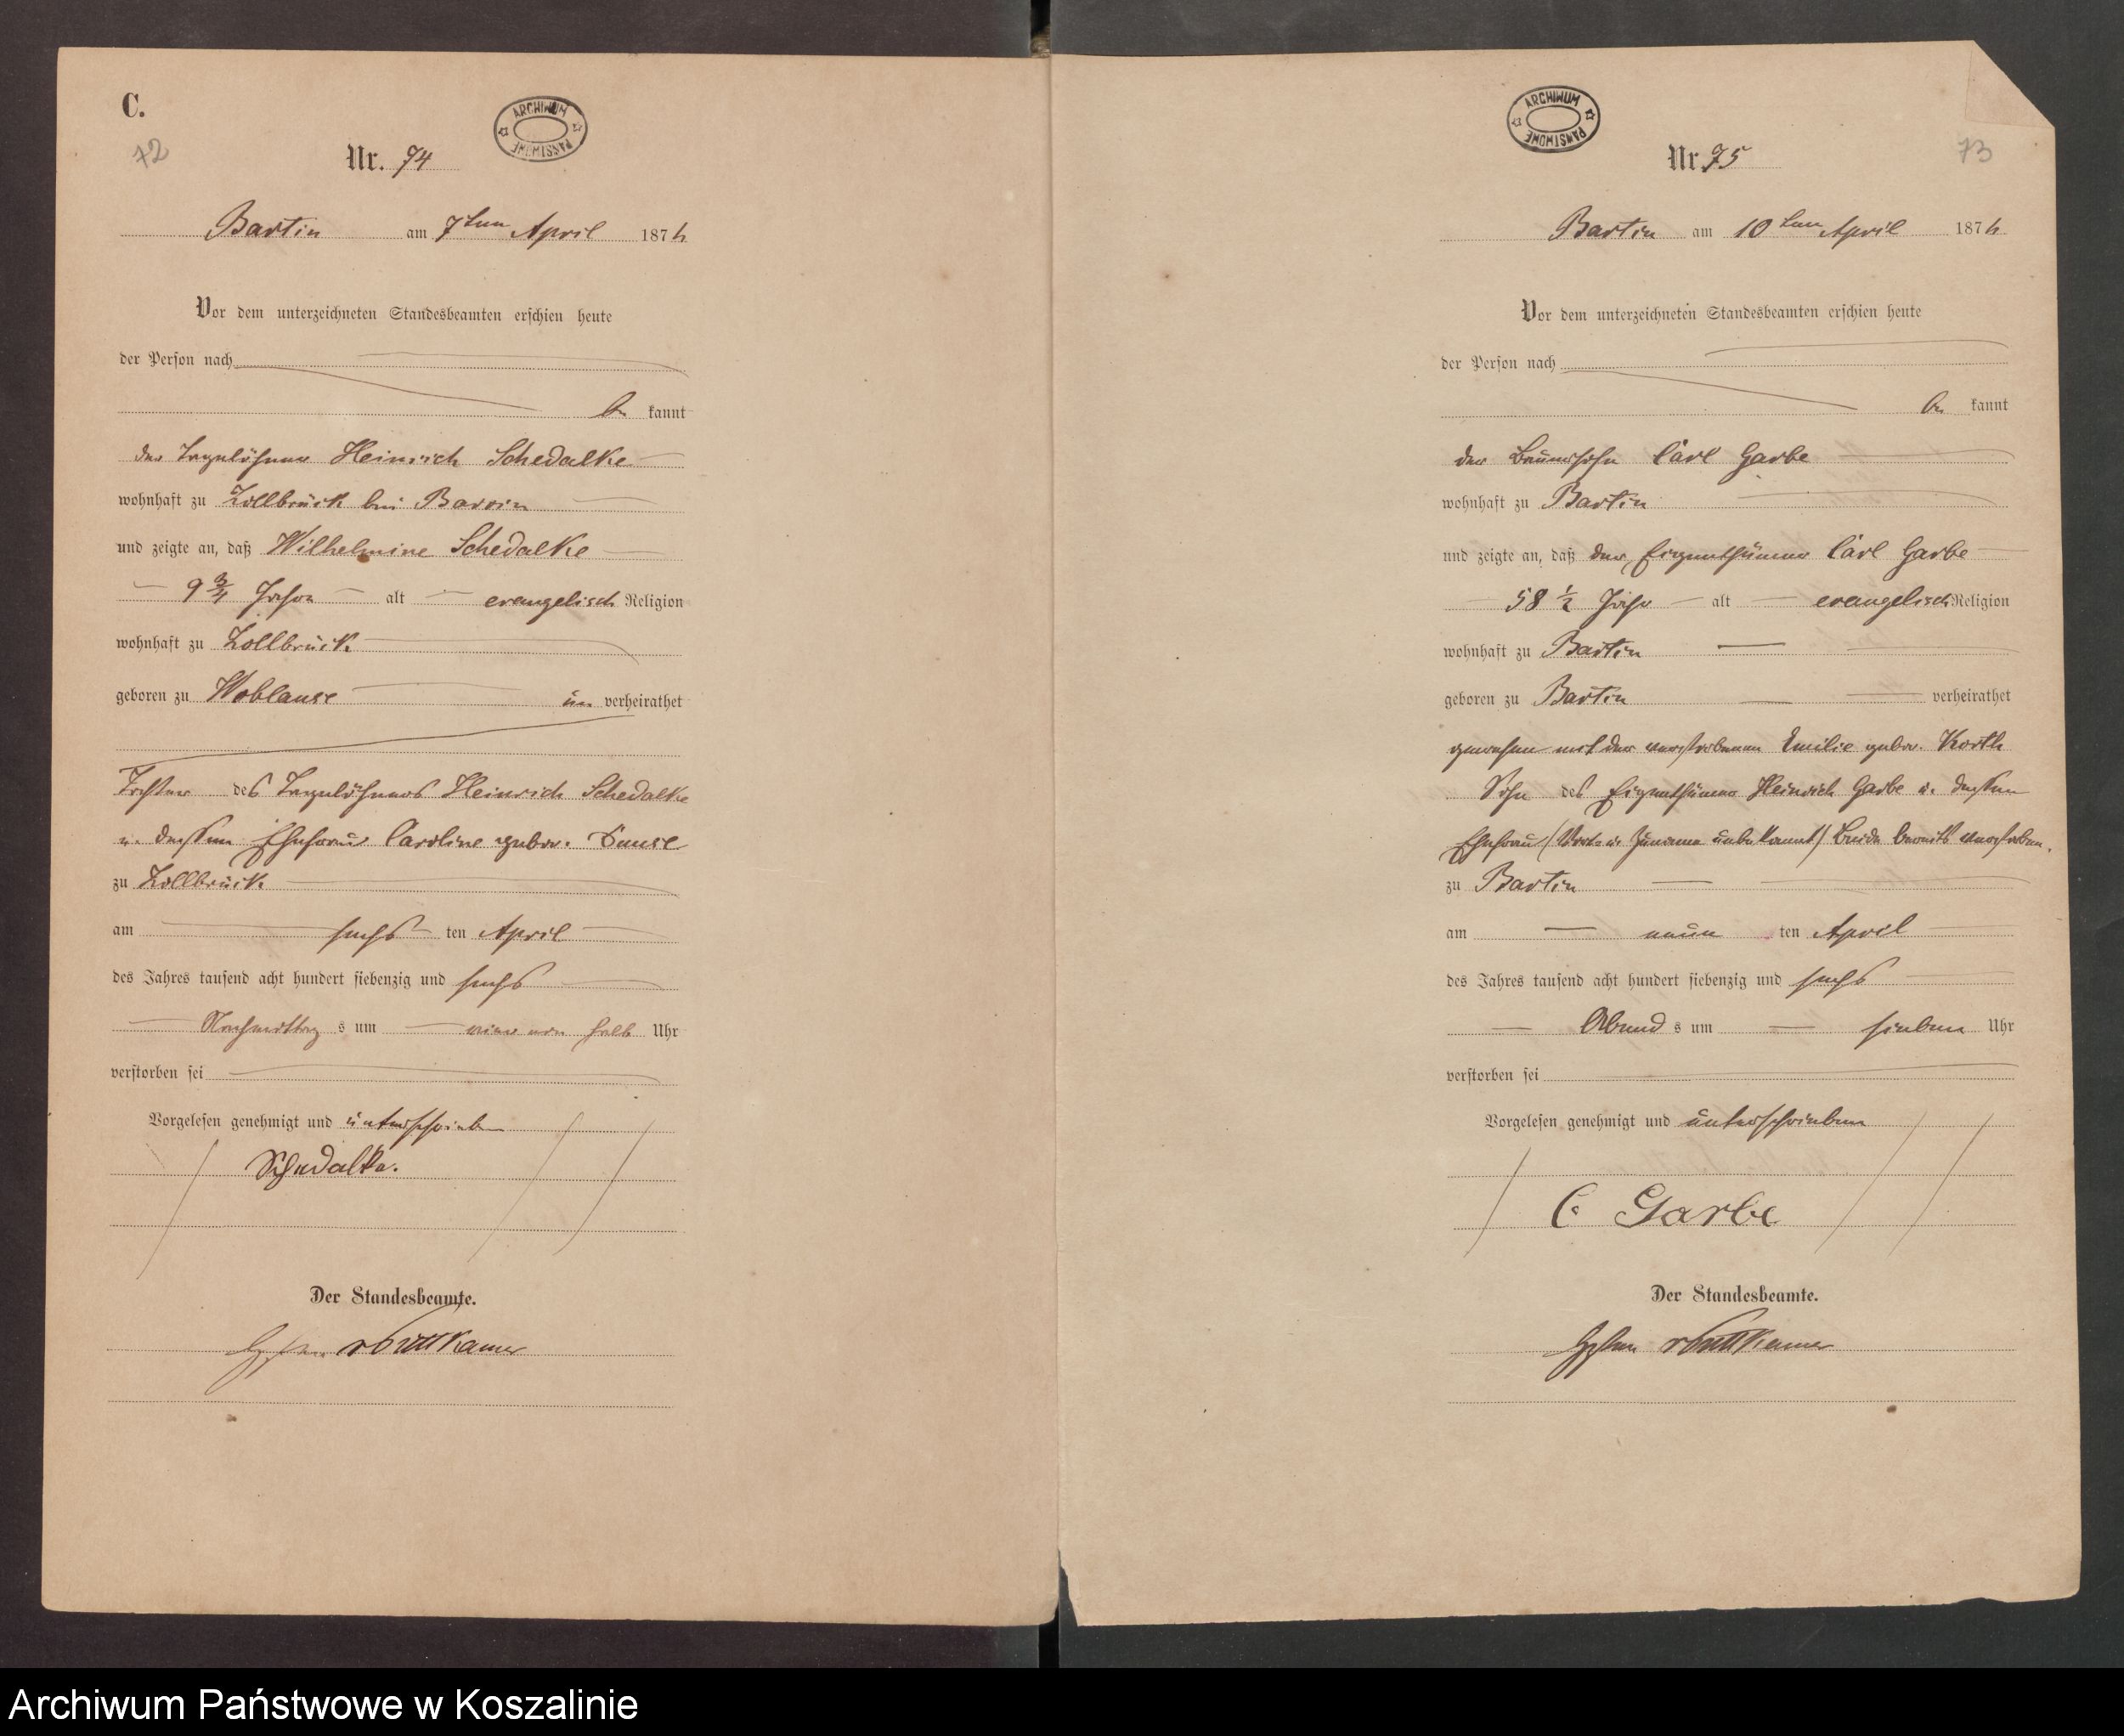 C.
72
ARCHIWUM PAŃSTWOWE
Nr. 74
Bartin am 7ten April 1876
Vor dem unterzeichneten Standesbeamten erschien heute
der Person nach
be kannt
der Tagelöhner Heinrich Schedalke
wohnhaft zu Zollbrück bei Barvin
und zeigte an, daß Wilhelmine Schedalke
9 3/4 Jahr alt evangelisch Religion
wohnhaft zu Zollbrück
geboren zu Woblanse un verheirathet
Tochter des Tagelöhners Heinrich Schedalke
u. dessen Ehefrau Caroline gebor.
zu Zollbrück
am sechs ten April
des Jahres tausend acht hundert siebenzig und sechs
Nachmittag s um ein ein halb Uhr
verstorben sei
Vorgelesen genehmigt und unterschrieben
Schedalke.
Der Standesbeamte.
vPuttkamer
ARCHIWUM PAŃSTWOWE
Nr. 75
73
Bartin am 10ten April 1876
Vor dem unterzeichneten Standesbeamten erschien heute
der Person nach
be kannt
der Bauersohn Carl Garbe
wohnhaft zu Bartin
und zeigte an, daß der Eigenthümer Carl Garbe
58 1/2 Jahr alt evangelisch Religion
wohnhaft zu Bartin
geboren zu Bartin verheirathet
gewesen mit der verstorbenen Emilie gebor. Korth
Sohn des Eigenthümer Heinrich Garbe u. dessen
Ehefrau (Vor- u. Zuname unbekannt) Beide bereits verstorben.
zu Bartin
am neun ten April
des Jahres tausend acht hundert siebenzig und sechs
Abend s um sieben Uhr
verstorben sei
Vorgelesen genehmigt und unterschrieben
C Garbe
Der Standesbeamte.
vPuttkamer
Archiwum Państwowe w Koszalinie